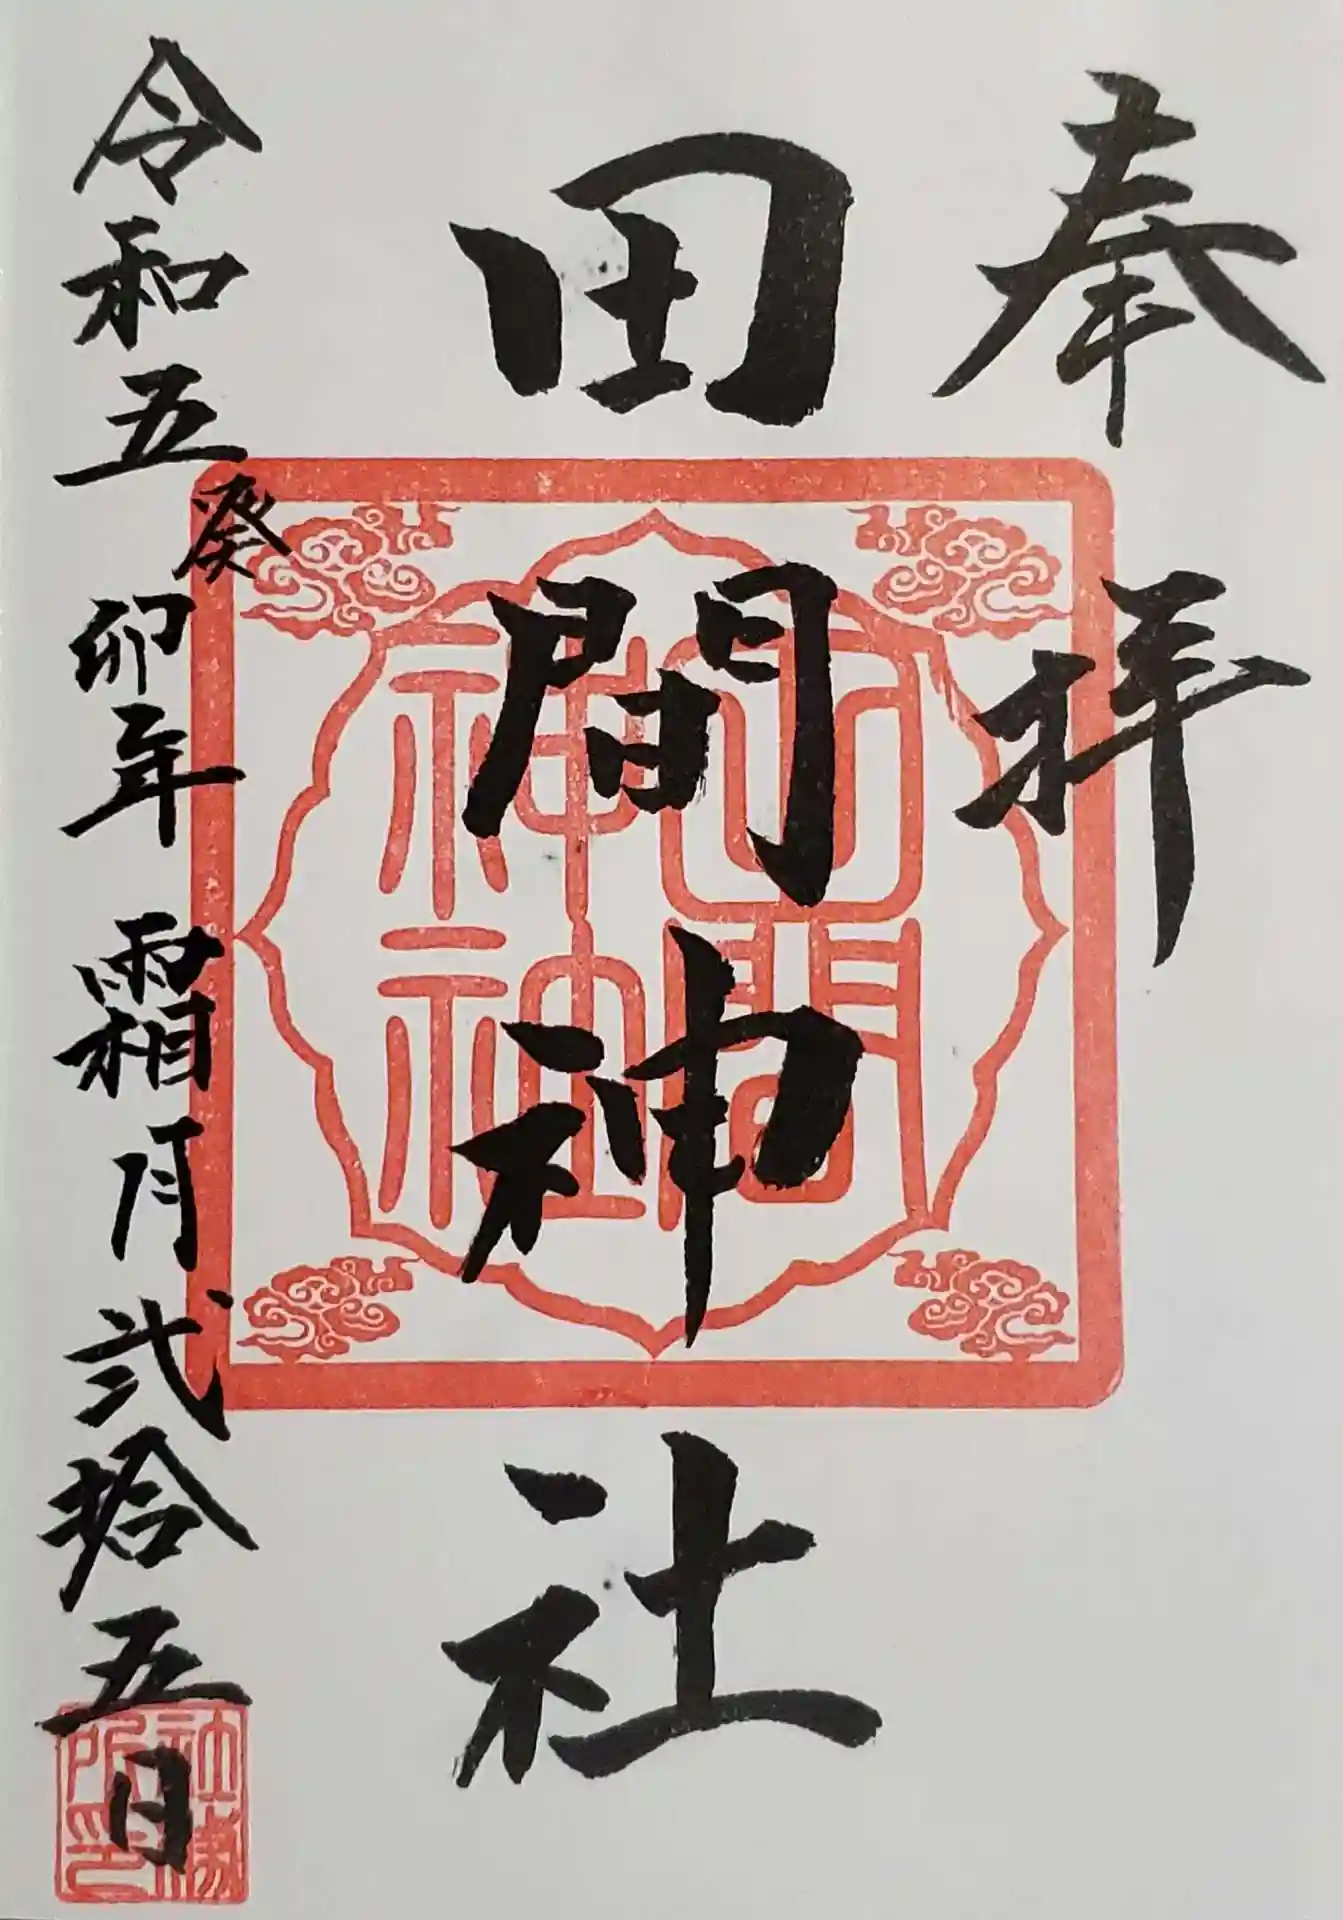 奉拝
田間神社
令和五癸卯年霜月弐拾五日
田間
神社
社務
所印